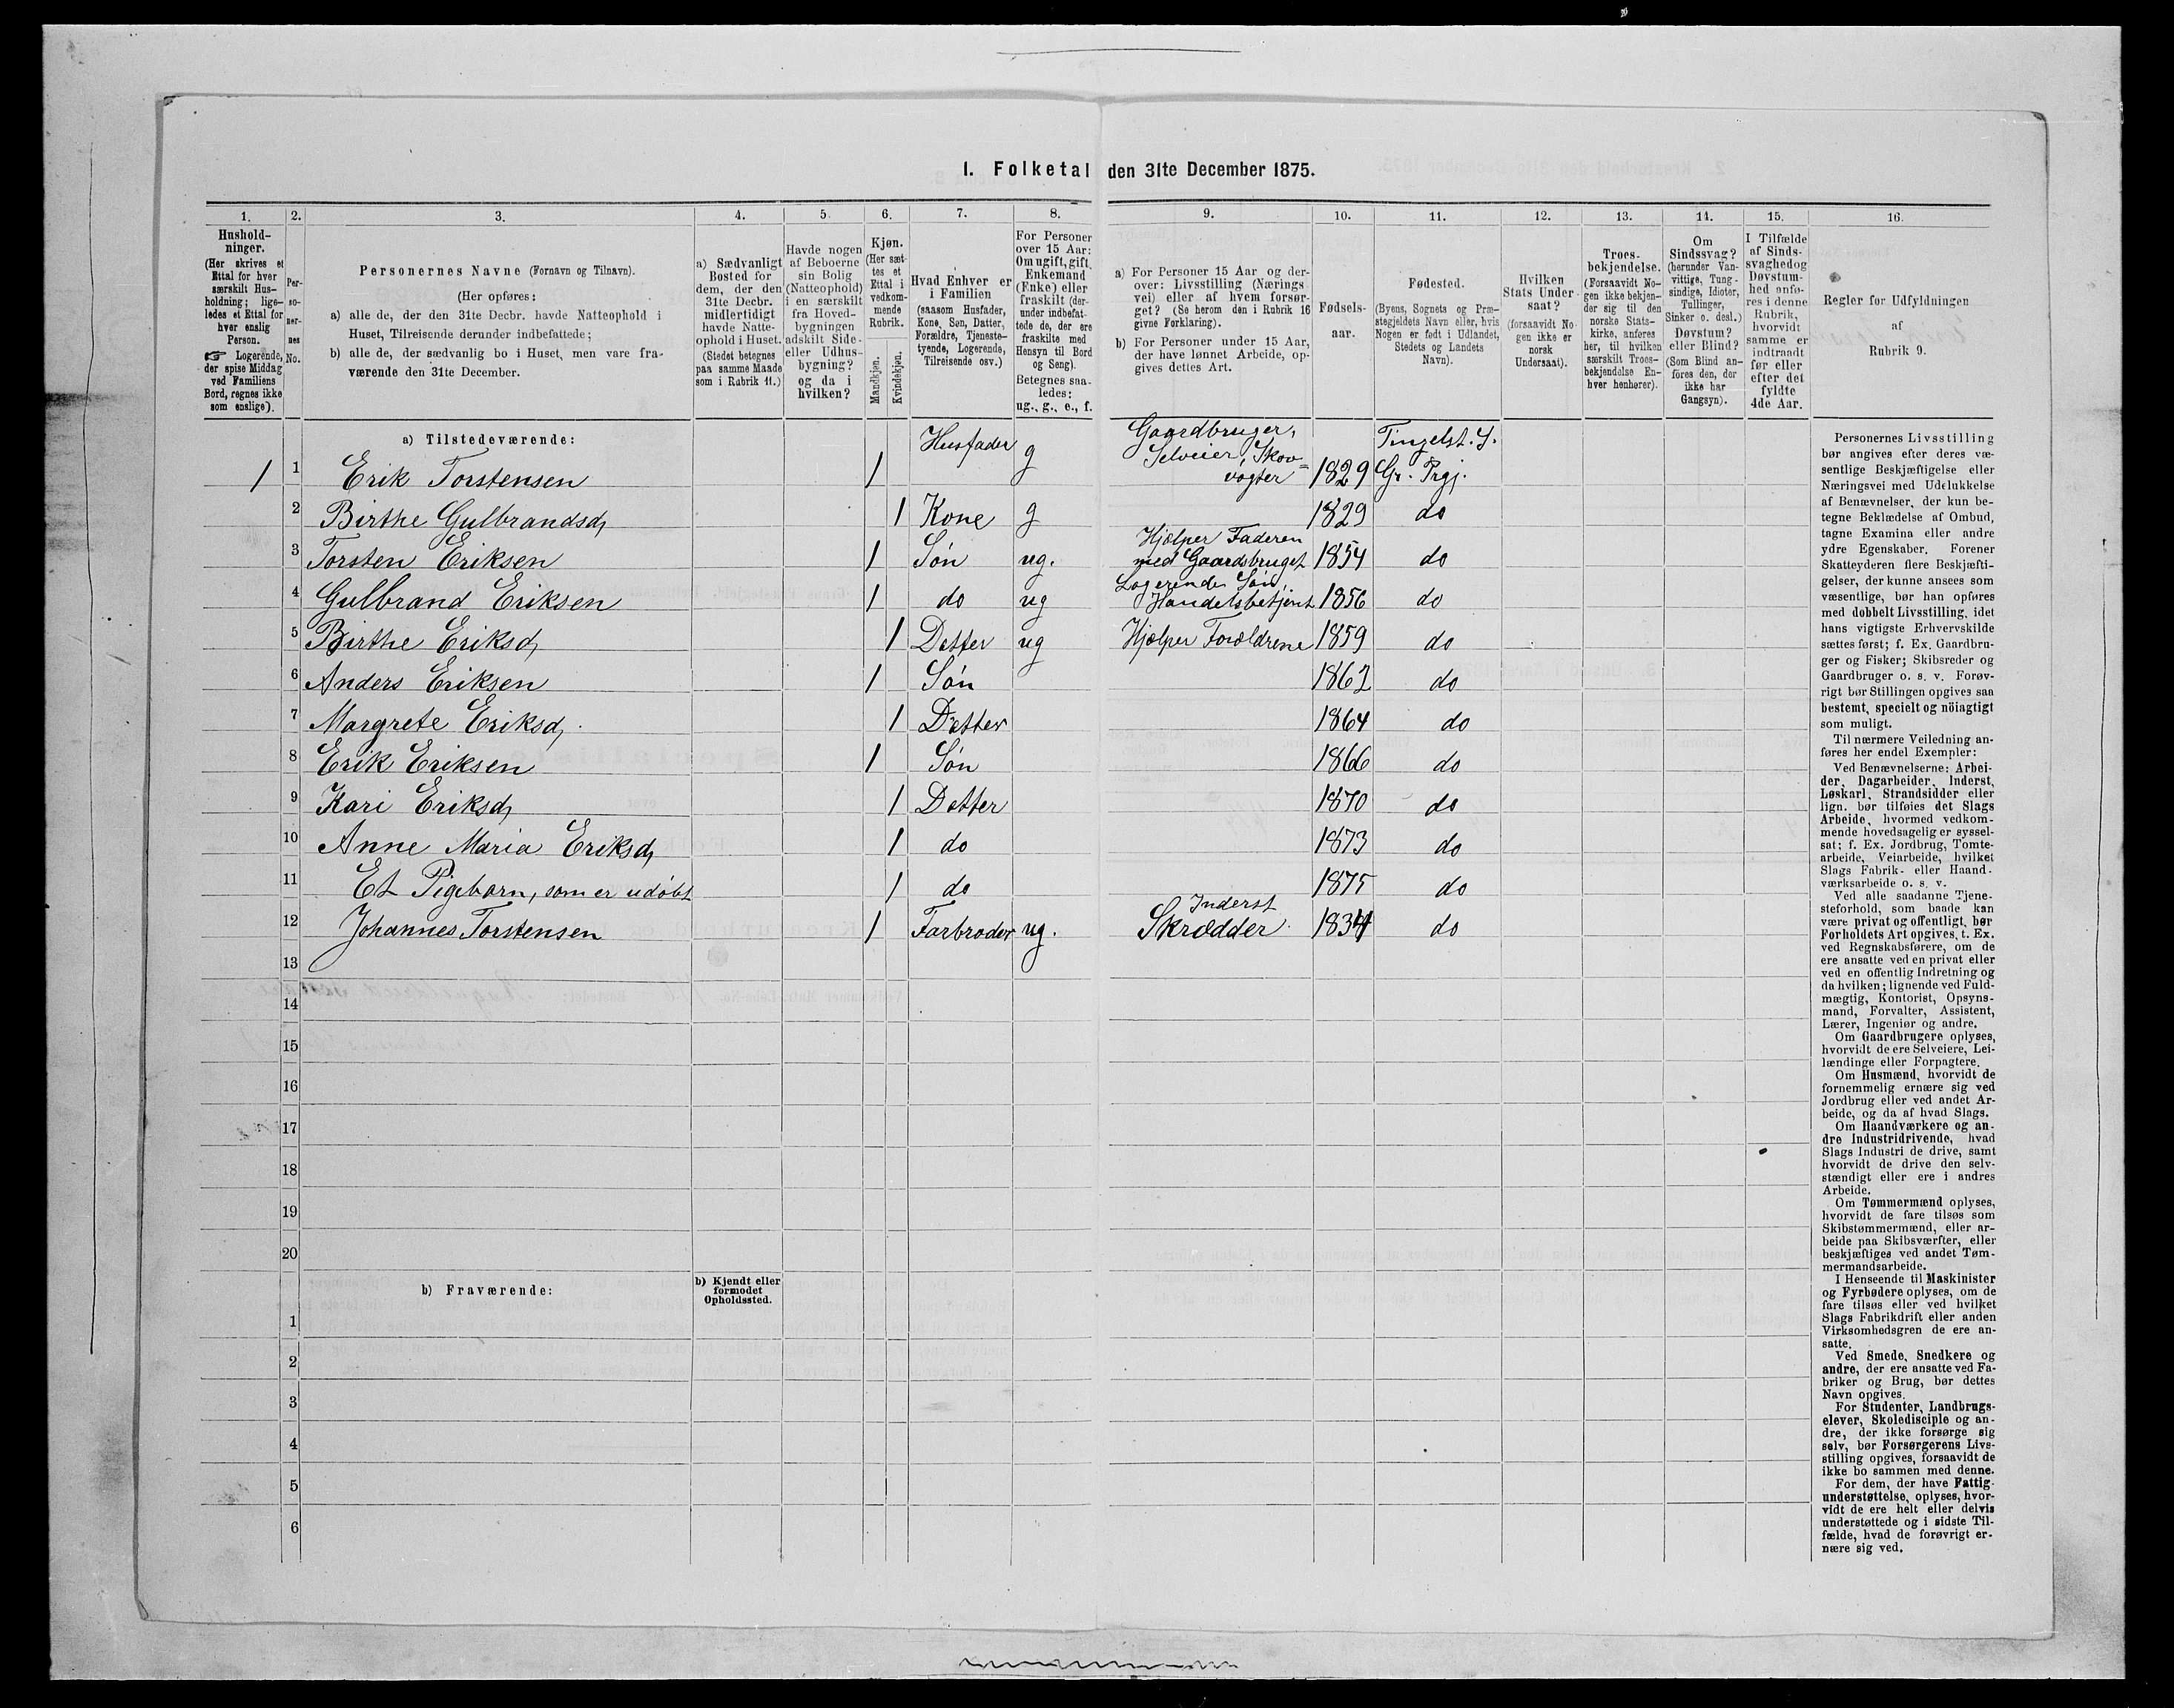 1. Folketal den 31te December 1875.
1. 2. 3. 4. 5. 6. 7. 8. 9. 10. 11. 12. 13. 14. 15. 16.
Hushold-
ninger.
(Her skrives et
Ettal for hver
særskilt Hus-
holdning; lige-
ledes et Ettal for
hver enslig
Person.
☞ Logerende,
der spise Middag
ved Familiens
Bord, regnes ikke
som enslige).
Per-
so-
ner-
nes
No.
Personernes Navne (Fornavn og Tilnavn).
(Her opføres:
a) alle de, der den 31te Decbr. havde Natteophold i
Huset, Tilreisende derunder indbefattede;
b) alle de, der sædvanlig bo i Huset, men vare fra-
værende den 31te December.
a) Sædvanligt
Bosted for
dem, der den
31te Decbr.
midlertidigt
havde Natte-
ophold i Huset.
(Stedet betegnes
paa samme Maade
som i Rubrik 11.)
Havde nogen
af Beboerne
sin Bolig
(Natteophold)
i en særskilt
fra Hoved-
bygningen
adskilt Side-
eller Udhus-
bygning?
og da i
hvilken?
Kjøn.
(Her sæt-
tes et
Ettal i
vedkom-
mende
Rubrik.
Mandkjøn.
Kvindekjøn.
Hvad Enhver er
i Familien
(saasom Husfader,
Kone, Søn, Datter,
Forældre, Tjeneste-
tyende, Logerende,
Tilreisende osv.)
For Personer
over 15 Aar:
Om ugift, gift,
Enkemand
(Enke) eller
fraskilt (der-
under indbefat-
tede de, der ere
fraskilte med
Hensyn til Bord
og Seng).
Betegnes saa-
ledes:
ug., g., e., f.
a) For Personer 15 Aar og der-
over: Livsstilling (Nærings
vei) eller af hvem forsør-
get? (Se herom den i Rubrik 16
givne Forklaring).
b) For Personer under 15 Aar,
der have lønnet Arbeide, op-
gives dettes Art.
Fødsels-
aar.
Fødested.
(Byens, Sognets og Præ-
stegjeldets Navn eller, hvis
Nogen er født i Udlandet,
Stedets og Landets
Navn).
Hvilken
Stats Under-
saat?
(forsaavidt No-
gen ikke er
norsk
Undersaat).
Troes-
bekjendelse.
(Forsaavidt No-
gen ikke bekjen-
der sig til den
norske Stats-
kirke, anføres
her, til hvilken
særskilt Troes-
bekjendelse En-
hver henhører).
Om
Sindssvag?
(herunder Van-
vittige, Tung-
sindige, Idioter,
Tullinger,
Sinker o. desl.)
Døvstum?
eller Blind?
(Som Blind an-
føres den, der
ikke har
Gangsyn).
I Tilfælde
af Sinds-
svaghed og
Døvstum-
hed anfø-
res i denne
Rubrik,
hvorvidt
samme er
indtraadt
før eller
efter det
fyldte
4de Aar.
Regler for Udfyldningen
af
Rubrik 9.
a) Tilstedeværende:
1 1 Erik Torstensen 1 Husfader g Gaardbruger, Selveier, Skov=vogter 1829 Tingelst. S. Gr. Prgj.
2 Birthe Gulbrandsd, 1 Kone g 1829 do
3 Torsten Eriksen 1 Søn ug. Hjælper Faderen med Gaardsbruget 1854 do
4 Gulbrand Eriksen 1 do ug Logerende Søn, Handelsbetjent 1856 do
5 Birthe Eriksd, 1 Datter ug Hjælper Forældrene 1859 do
6 Anders Eriksen 1 Søn 1862 do
7 Margrete Eriksd, 1 Datter 1864 do
8 Erik Eriksen 1 Søn 1866 do
9 Kari Eriksd, 1 Datter 1870 do
10 Anne Maria Eriksd, 1 do 1873 do
11 Et Pigebarn, som er udøbt 1 do 1875 do
12 Johannes Torstensen 1 Farbroder ug. Inderst Skrædder 1834 do
13
14
15
16
17
18
19
20
b) Fraværende:
b) Kjendt eller
formodet
Opholdssted.
1
2
3
4
5
6
Personernes Livsstilling
bør angives efter deres væ-
sentlige Beskjæftigelse eller
Næringsvei med Udelukkelse
af Benævnelser, der kun be-
tegne Beklædelse af Ombud,
tagne Examina eller andre
ydre Egenskaber. Forener
Skatteyderen flere Beskjæfti-
gelser, der kunne ansees som
væsentlige, bør han opføres
med dobbelt Livsstilling, idet
hans vigtigste Erhvervskilde
sættes først; f. Ex. Gaardbru-
ger og Fisker; Skibsreder og
Gaardbruger o. s. v. Forøv-
rigt bør Stillingen opgives saa
bestemt, specielt og nöiagtigt
som muligt.
Til nærmere Veiledning an-
føres her endel Exempler:
Ved Benævnelserne: Arbei-
der, Dagarbeider, Inderst,
Løskarl, Strandsidder eller
lign. bør tilføies det Slags
Arbeide, hvormed vedkom-
mende hovedsagelig er syssel-
sat; f. Ex. Jordbrug, Tomte-
arbeide, Veiarbeide, hvilket
Slags Fabrik- eller Haand-
værksarbeide o. s. v.
Ved alle saadanne Tjene-
steforhold, som baade kan
være privat og offentligt, bør
Forholdets Art opgives, t. Ex.
ved Regnskabsførere, om de
ere ansatte ved en privat eller
ved en offentlig Indretning og
da hvilken; lignende ved Fuld-
mægtig, Kontorist, Opsyns-
mand, Forvalter, Assistent,
Lærer, Ingeniør og andre.
Om Gaardbrugere oplyses,
hvorvidt de ere Selveiere, Lei-
lændinge eller Forpagtere.
Om Husmænd, hvorvidt de
fornemmelig ernære sig ved
Jordbrug eller ved andet Ar-
beide, og da af hvad Slags.
Om Haandværkere og an-
dre Industridrivende, hvad
Slags Industri de drive, samt
hvorvidt de drive den selv-
stændigt eller ere i andres
Arbeide.
Om Tømmermænd oplyses,
hvorvidt de fare tilsøs som
Skibstømmermænd, eller ar-
beide paa Skibsværfter, eller
beskjæftiges ved andet Tøm-
mermandsarbeide.
I Henseende til Maskinister
og Fyrbødere oplyses, om de
fare tilsøs eller ved hvilket
Slags Fabrikdrift eller anden
Virksomhedsgren de ere an-
satte.
Ved Smede, Snedkere og
andre, der ere ansatte ved Fa-
briker og Brug, bør dettes
Navn opgives.
For Studenter, Landbrugs-
elever, Skoledisciple og an-
dre, der ikke forsørge sig
selv, bør Forsørgerens Livs-
stilling opgives, forsaavidt de
ikke bo sammen med denne.
For dem, der have Fattig-
understøttelse, oplyses, hvor-
vidt de ere helt eller delvis
understøttede og i sidste Til-
fælde, hvad de forøvrigt er-
nære sig ved.